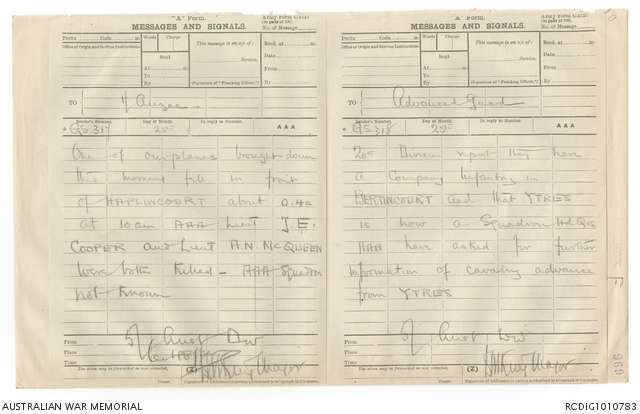 "A" Form.
MESSAGES AND SIGNALS.
Army Form C.2121
(In pads of 100.)
No. of Message
Prefix Code m
Office of Origin and Service Instructions.
Words Charge
Sent
At m
To
By
This message is on a/c of:
Service.
(Signature of "Franking Officer.")
Recd. at m
Date
From
By
TO
1/ Anzac
Sender's Number. Day of Month. In reply to Number.
* GS 317 20th AAA
One of our planes brought down
this morning fell in front
of HAPLINCOURT about 0.4c
at 10 am AAA Lieut J.E.
COOPER and Lieut A.N. McQUEEN
were both killed – AAA Squadron
not known
From
Place
Time
5/ Aust Div
(Z)
Major
"A" Form.
MESSAGES AND SIGNALS.
Army Form C.2121
(In pads of 100.)
No. of Message
Prefix Code m
Office of Origin and Service Instructions.
Words Charge
Sent
At m
To
By
This message is on a/c of:
Service.
(Signature of "Franking Officer.")
Recd. at m
Date
From
By
TO
Advanced Guard
Sender's Number. Day of Month. In reply to Number.
* GS 318 20th AAA
20th Division report they have
a Company Infantry in
BERTINCOURT and that YTRES
is now a Squadron Hd Qrs
AAA have asked for further
information of cavalry advance
from YTRES
From
Place
Time
5/ Aust Div
(Z)
Major
AUSTRALIAN WAR MEMORIAL
RCDIG1010783